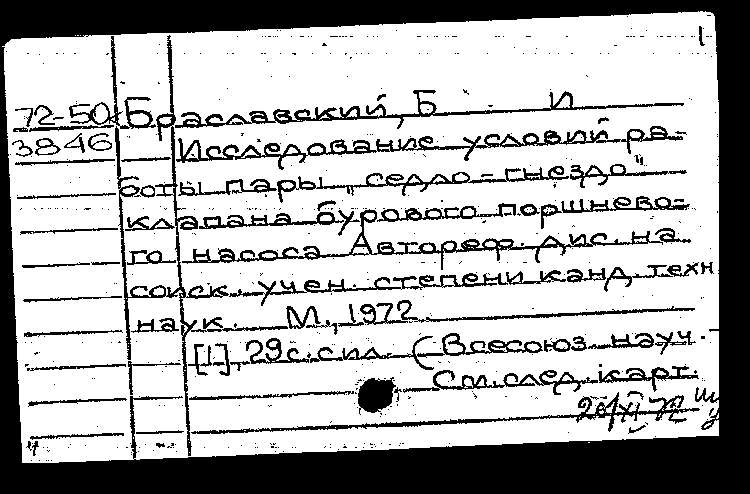 1
72-50 Браславский, Б И
3846 Исследование условий ра-
боты пары „седло-гнездо"
клапана бурового поршнево-
го насоса Автореф. дис. на
соиск. учен. степени канд. техн
наук. М., 1972.
[1], 29 с. с ил. (Всесоюз. науч.-
См. след. карт.
XI 72